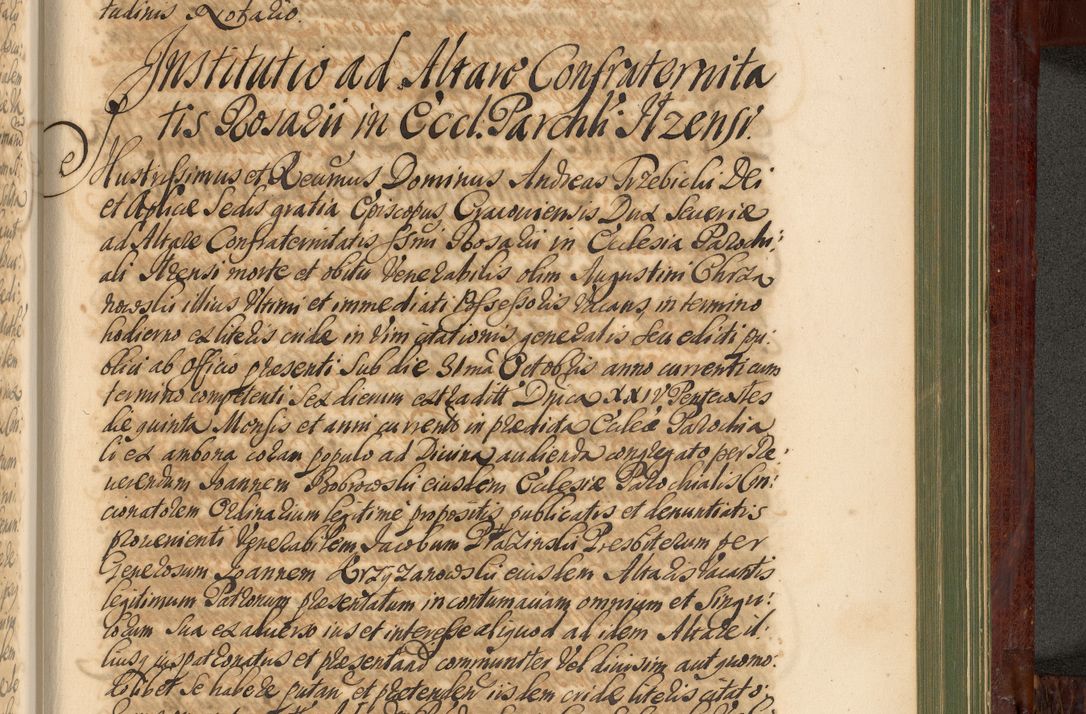 tudinis Notario.
Institutio ad Altare Confraternita
tis Rosarii in Eccl. Parchli: Ilzensi.
Illustrissimus et Reumus Dominus Andreas Trzebicki Dei
et Aplicæ Sedis gratia Episcopus Cracoviensis Dux Severiæ
ad Altare Confraternitatis SSmi Rosarii in Ecclesia Parochi:
ali Ilzensi morte et obitu Venerabilis olim Augustini Chrza
nowski illius Ultimi et immediati Possessoris Vacans, in termino
hodierno ex literis cridæ in vim citationis generalis seu edicti pu:
blici ab Officio præsenti sub die 31mâ Octobris anno currenti cum
termino competenti sex dierum extradittis Dnica XXIV Pentecostes
die quinta Mensis et anni currentis in prædicta Eccleâ Parochia
li ex ambona coram populo ad Divina audienda congregato per Re:
verendum Joannem Bobrowski eiusdem Ecclesiæ Parochialis Con:
cionatorem Ordinarium legitime propositis publicatis et denuntiatis
provenienti Venerabilem Jacobum Ptaszinski Presbiterum per
Generosum Joannem Krzyzanowski eiusdem Altaris vacantis
legitimum Patronum præsentatum in contumaciam omnium et singu:
lorum sua ex adverso ius et interesse aliquod ad idem Altare il:
liusq iuspatronatus et præsentand communiter vel divisim aut quomo:
dolibet se habere putan et prætenden iisdem cridæ literis citato: